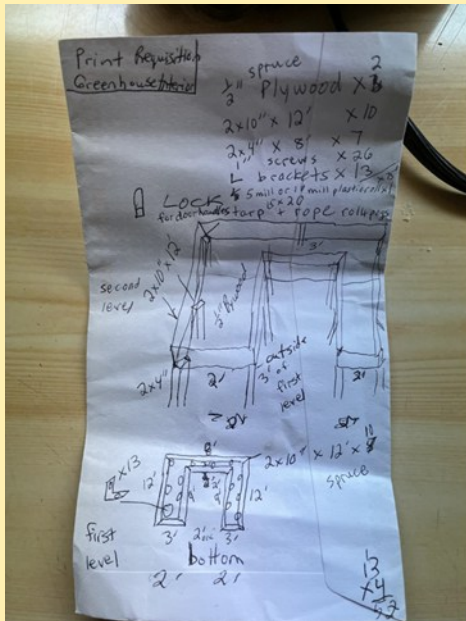 Print Requisition
Greenhouse Interior
spruce 2
1/2" Plywood x
2x10" x 12' x 10
2x4" x 8' x 7
1" screws x 26
L brackets x 13
5 mill or
LOCK
for door handles tarp + rope
x 20
3'
second
level
2x10" x 12'
1/2" Plywood
2x4"
2'
outside
3' of
first
level
2'
8'
2x10" x 12' x 10
spruce
x13
12'
12'
3'
2'
3'
first
level
bottom
2' 2'
13
x4
52